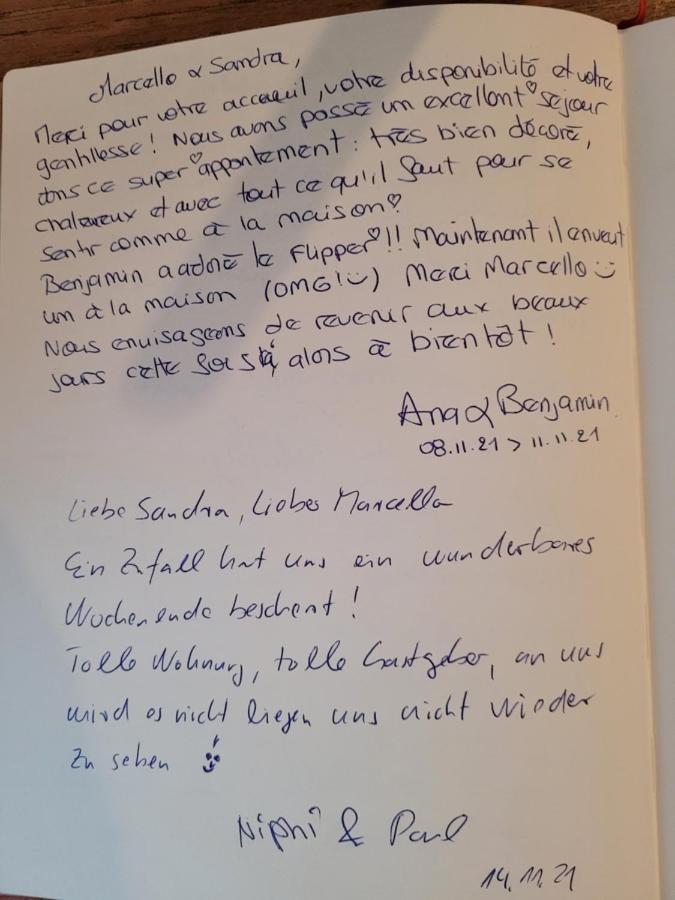 Marcello & Sandra,
Merci pour votre acceuil, votre disponibilité et votre
gentillesse! Nous avons passé un excellent séjour
dans ce super♡appartement: très bien décoré,
chaleureux et avec tout ce qu'il faut pour se
sentir comme à la maison♡
Benjamin a adoré le Flipper♡!! Maintenant il en veut
un à la maison (OMG!☺) Merci Marcello ☺
Nous envisageons de revenir aux beaux
jours cette fois, alors à bientôt!
Ana & Benjamin
08.11.21 > 11.11.21
Liebe Sandra, Liebes Marcello
Ein Zufall hat uns ein wunderbares
Wochenende beschert!
Tolle Wohnung, tolle Gastgeber, an uns
wird es nicht liegen uns nicht wieder
zu sehen
Niphi & Paul
14.11.21